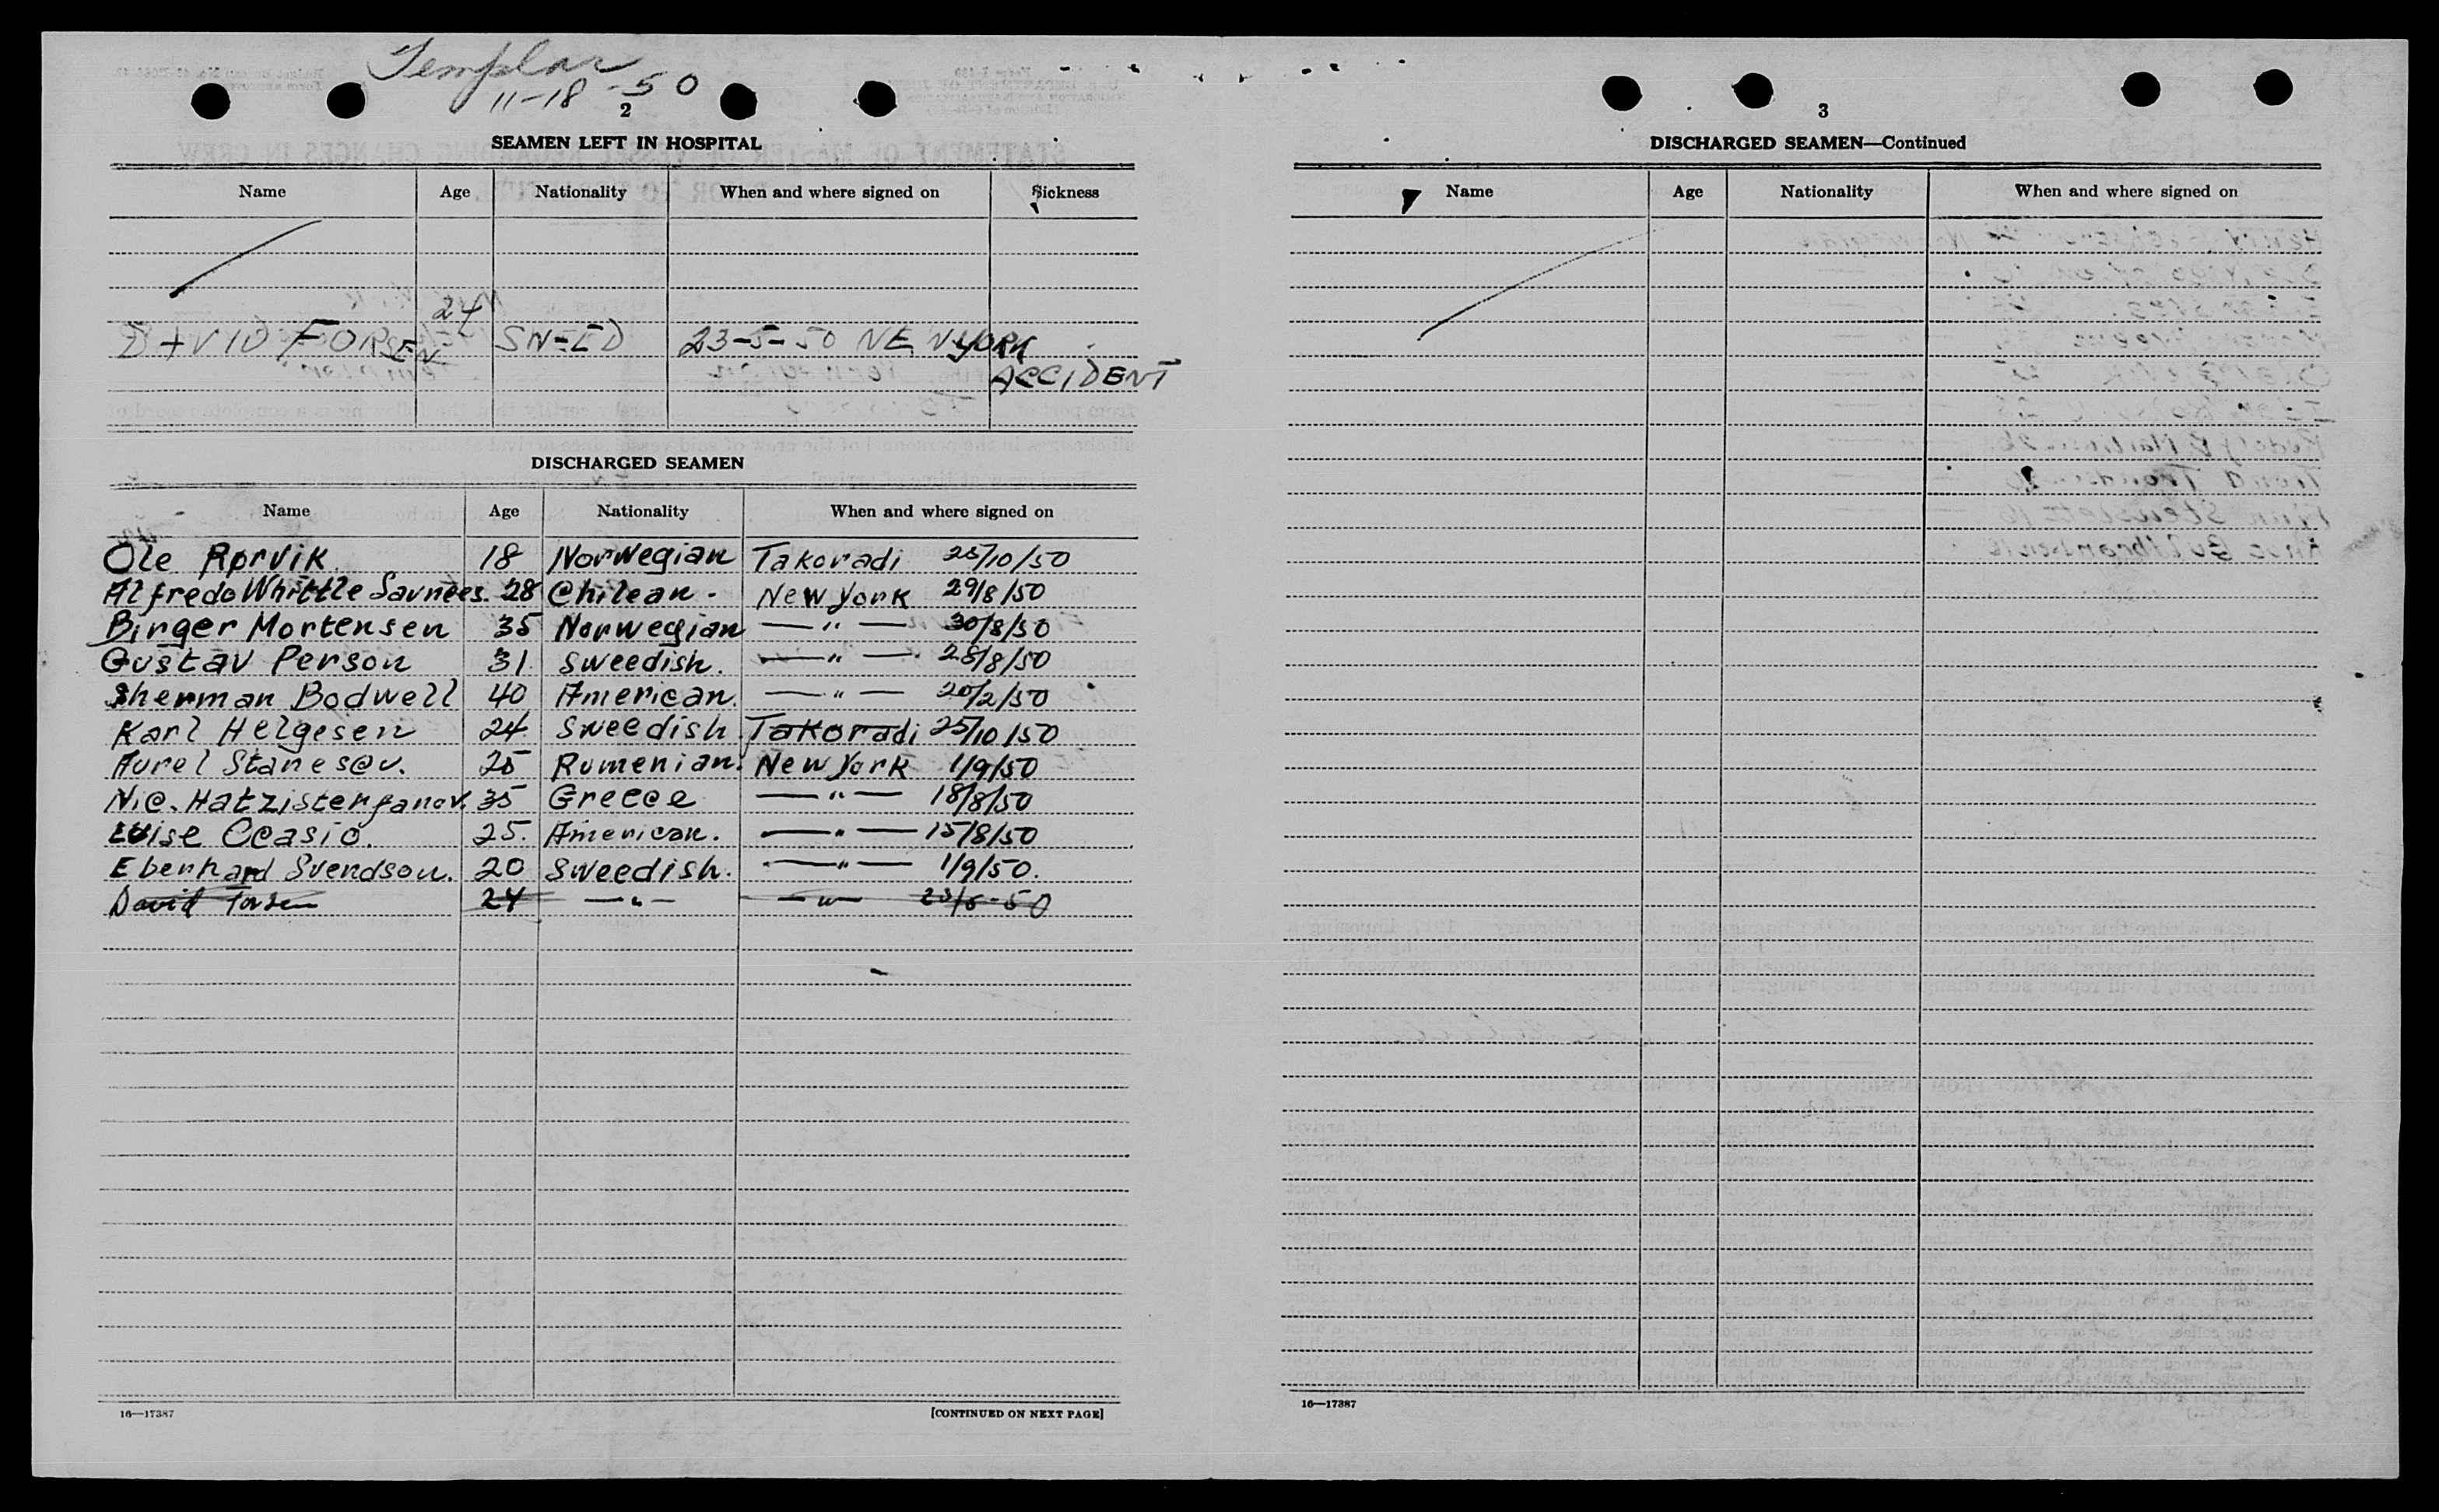 Templar
11-18-50
2
SEAMEN LEFT IN HOSPITAL
Name Age Nationality When and where signed on Sickness
DAVID FORSEN 24 SWED 23-5-50 NEW YORK ACCIDENT
DISCHARGED SEAMEN
Name Age Nationality When and where signed on
Ole Rørvik 18 Norwegian Takoradi 25/10/50
Alfredo Whittle 28 Chilean - New York 29/8/50
Birger Mortensen 35 Norwegian — " — 30/8/50
Gustav Person 31 Sweedish. — " — 28/8/50
Sherman Bodwell 40 American. — " — 20/2/50
Karl Helgesen 24 Sweedish Takoradi 25/10/50
Aurel Stanescu. 25 Rumenian. New York 1/9/50
Nic. 35 Greece — " — 18/8/50
Luise Ocasio. 25. American. — " — 15/8/50
Ebenhard Svendson. 20 Sweedish. — " — 1/9/50.
David Forsen 24 — " — — " — 23/5-50
16—17387 [CONTINUED ON NEXT PAGE]
3
DISCHARGED SEAMEN—Continued
Name Age Nationality When and where signed on
16—17387